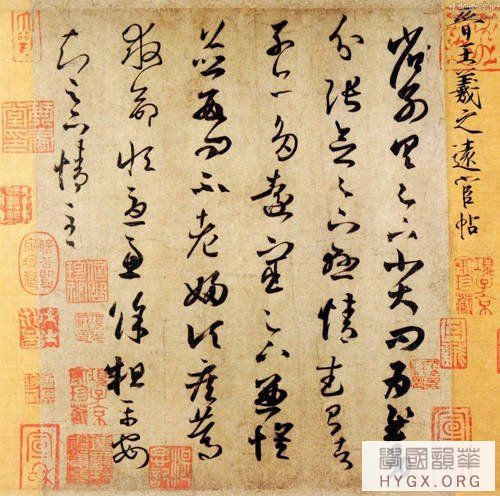 晉王羲之遠宦帖
省別具足下小大問為慰多
分張念足下懸情武昌諸
子亦多遠宦足下兼懷
並數問不老婦頃疾篤
救命恒憂慮餘粗平安
知足下情至
學國韻華
HYGX.ORG